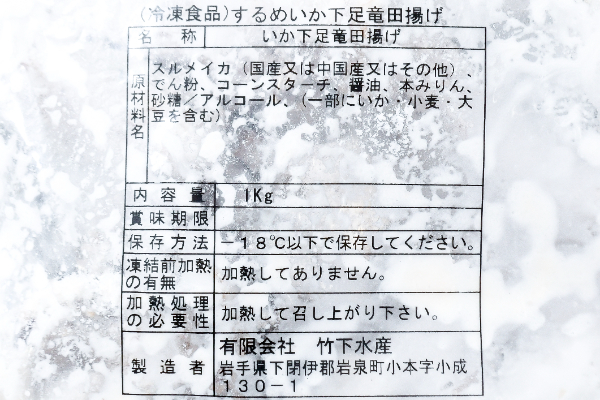 (冷凍食品)するめいか下足竜田揚げ
名称 いか下足竜田揚げ
原材料名 スルメイカ(国産又は中国産又はその他)、
でん粉、コーンスターチ、醤油、本みりん、
砂糖/アルコール、(一部にいか・小麦・大
豆を含む)
内容量 1Kg
賞味期限
保存方法 -18℃以下で保存してください。
凍結前加熱
の有無 加熱してありません。
加熱処理
の必要性 加熱して召し上がり下さい。
製造者 有限会社 竹下水産
岩手県下閉伊郡岩泉町小本字小成
130-1